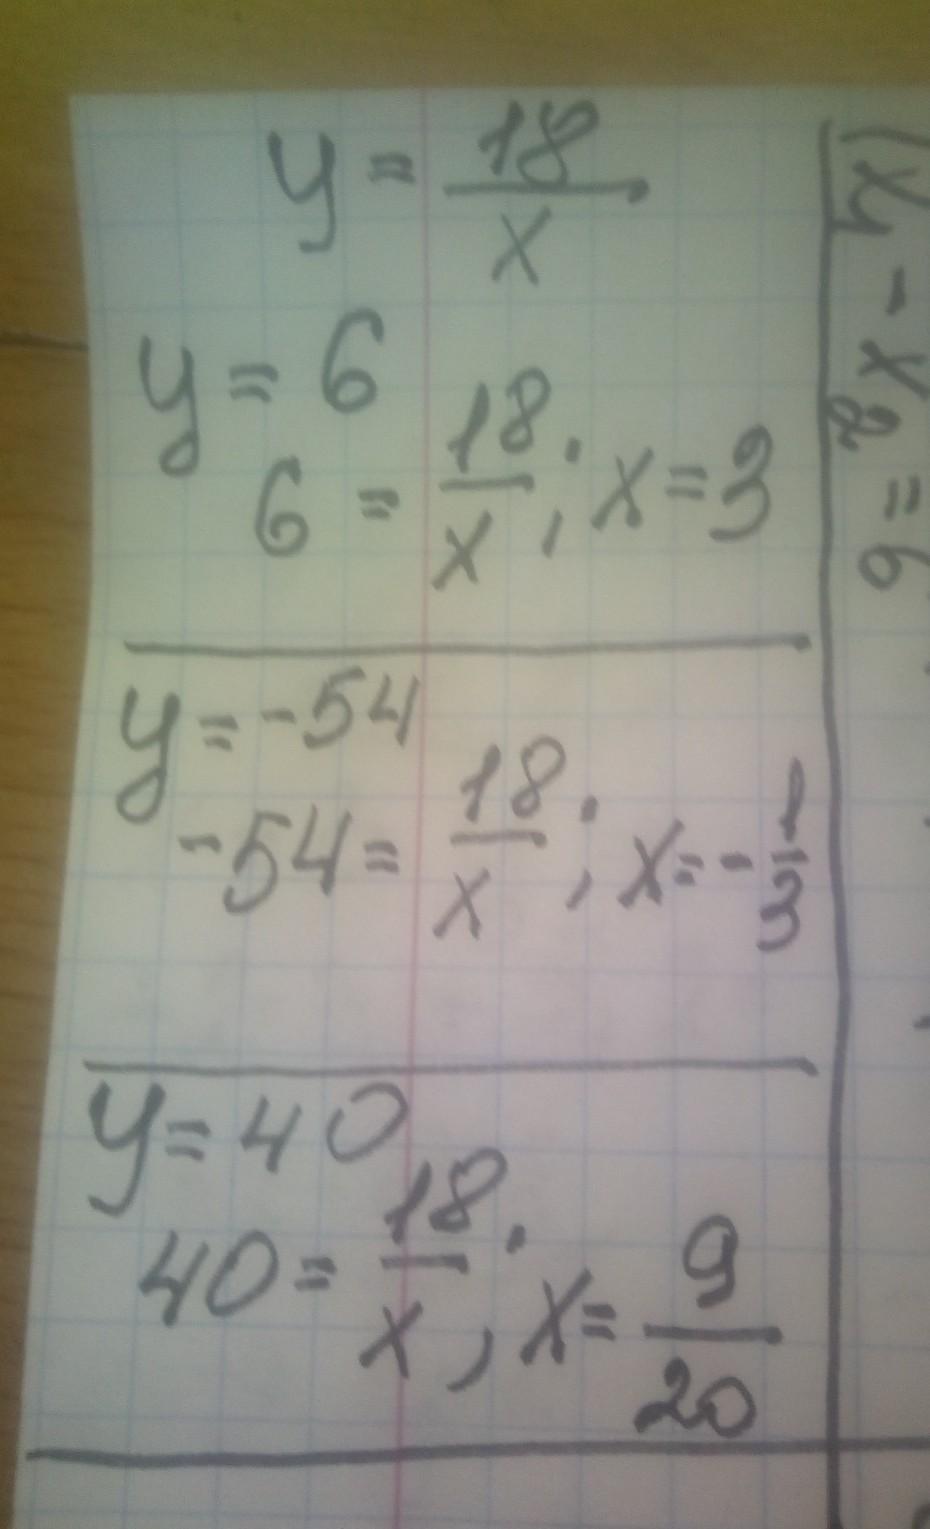 y = 18/x
y = 6
6 = 18/x ; x = 3
y = -54
-54 = 18/x ; x = -1/3
y = 40
40 = 18/x ; x = 9/20
x₁ - x₂ = 6